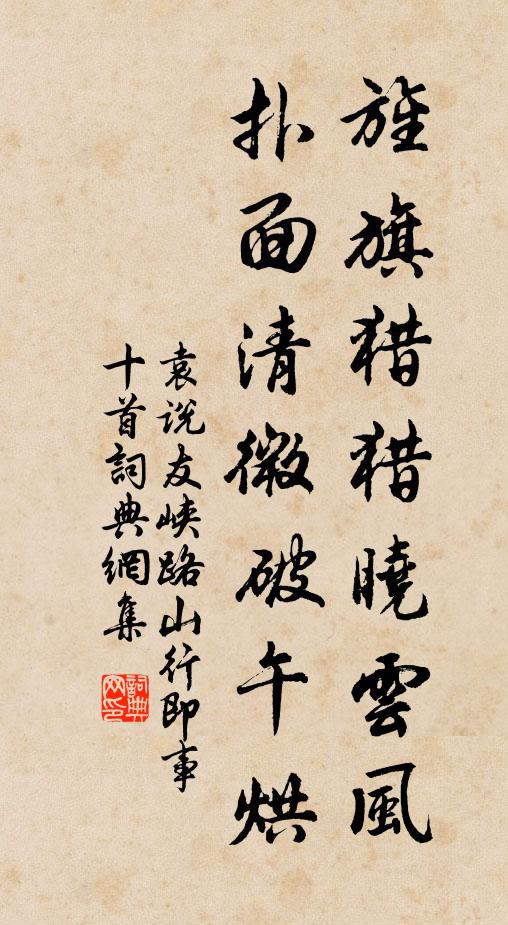 旌旗猎猎曉雲風
扑面清微破午烘
袁说友峡路山行即事
十首詞典網集
詞典网印